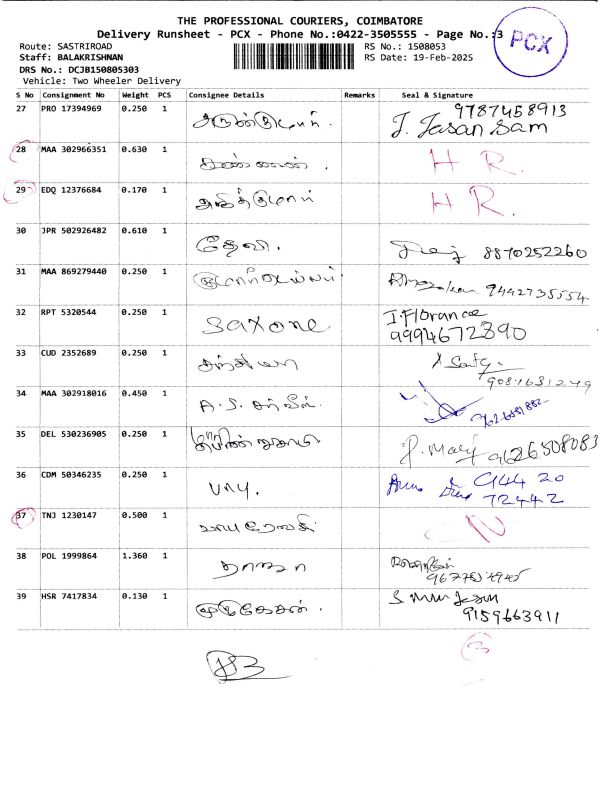 THE PROFESSIONAL COURIERS, COIMBATORE
Delivery Runsheet - PCX - Phone No.:0422-3505555 - Page No.:3
PCX
Route: SASTRIROAD
RS No.: 1508053
Staff: BALAKRISHNAN
RS Date: 19-Feb-2025
DRS No.: DCJB150805303
Vehicle: Two Wheeler Delivery
S No Consignment No Weight PCS Consignee Details Remarks Seal & Signature
27 PRO 17394969 0.250 1 9787458913
J. Jasan Sam
28 MAA 302966351 0.630 1 கண்ணன். H R.
29 EDQ 12376684 0.170 1 H R.
30 JPR 502926482 0.610 1 தேவி. 8870252260
31 MAA 869279440 0.250 1 9442735554
32 RPT 5320544 0.250 1 saxone J.Florance
9994672390
33 CUD 2352689 0.250 1 சந்தியா
9087631249
34 MAA 302918016 0.450 1 A.S.
35 DEL 530236905 0.250 1 P. Mary 9626508083
36 CDM 50346235 0.250 1 94420
72442
37 TNJ 1230147 0.500 1 N
38 POL 1999864 1.360 1 ராஜா
39 HSR 7417834 0.130 1 முருகேசன். 9159663911
3